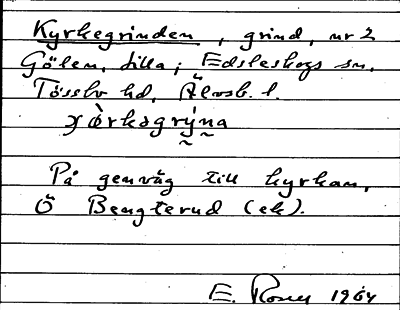 Kyrkegrinden, grind, nr 2
Gölen, lilla; Edsleskogs sn,
Tössbo hd, Älvsb. l.
På genväg till kyrkan,
Ö Bengterud (ek).
E. Rosen 1964